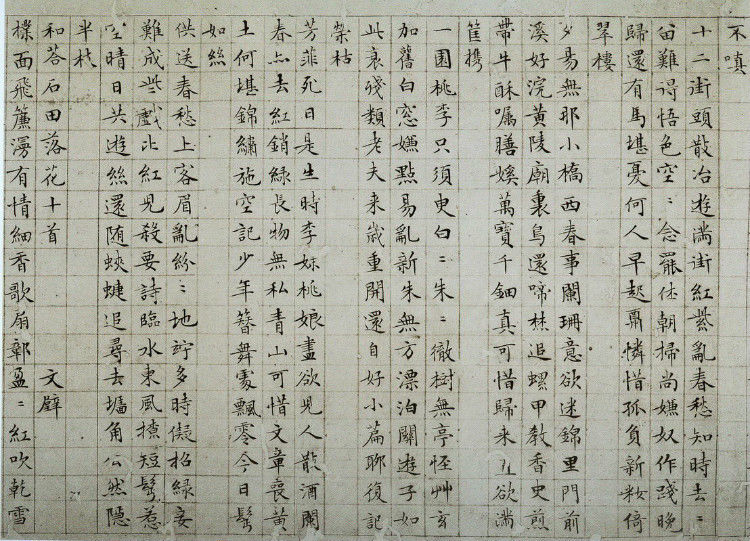 不嗔
十二街頭散冶遊滿街紅紫亂春愁知時去〻
留難得悟色空〻念罷休朝掃尚嫌奴作踐晚
歸還有馬堪憂何人早起憐惜孤負新粧倚
翠樓
夕昜無那小橋西春事闌珊意欲迷錦里門前
溪好浣黃陵廟裏鳥還啼焚追螺甲教香史煎
帶牛酥囑膳媄萬寶千鈿真可惜歸來直欲滿
筐攜
一園桃李只須臾白〻朱〻徹樹無亭怪艸玄
加舊白窓嫌點易亂新朱無方漂泊關遊子如
此衰殘類老夫来歲重開還自好小篇聊復記
榮枯
芳菲死日是生時李妹桃娘盡欲兒人散酒闌
春亦去紅銷綠長物無私青山可惜文章喪黃
土何堪錦繡施空記少年簪舞處飄零今日鬢
如絲
供送春愁上客眉亂紛〻地竚多時儗招綠妾
難成些戲比紅兒殺要詩臨水東風撩短鬢惹
空晴日共遊絲還隨蛺蝶追尋去墻角公然隱
半枝
和荅石田落花十首 文壁
撲面飛簾漫有情細香歌扇鄣盈〻紅吹乾雪